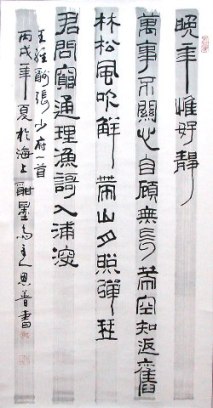 晚年惟好靜
萬事不關心自顧無長策空知返舊
林松風吹解帶山月照彈琴
君問窮通理漁謌入浦深
王維酬張少府一首
丙戌年夏於海上墨主書